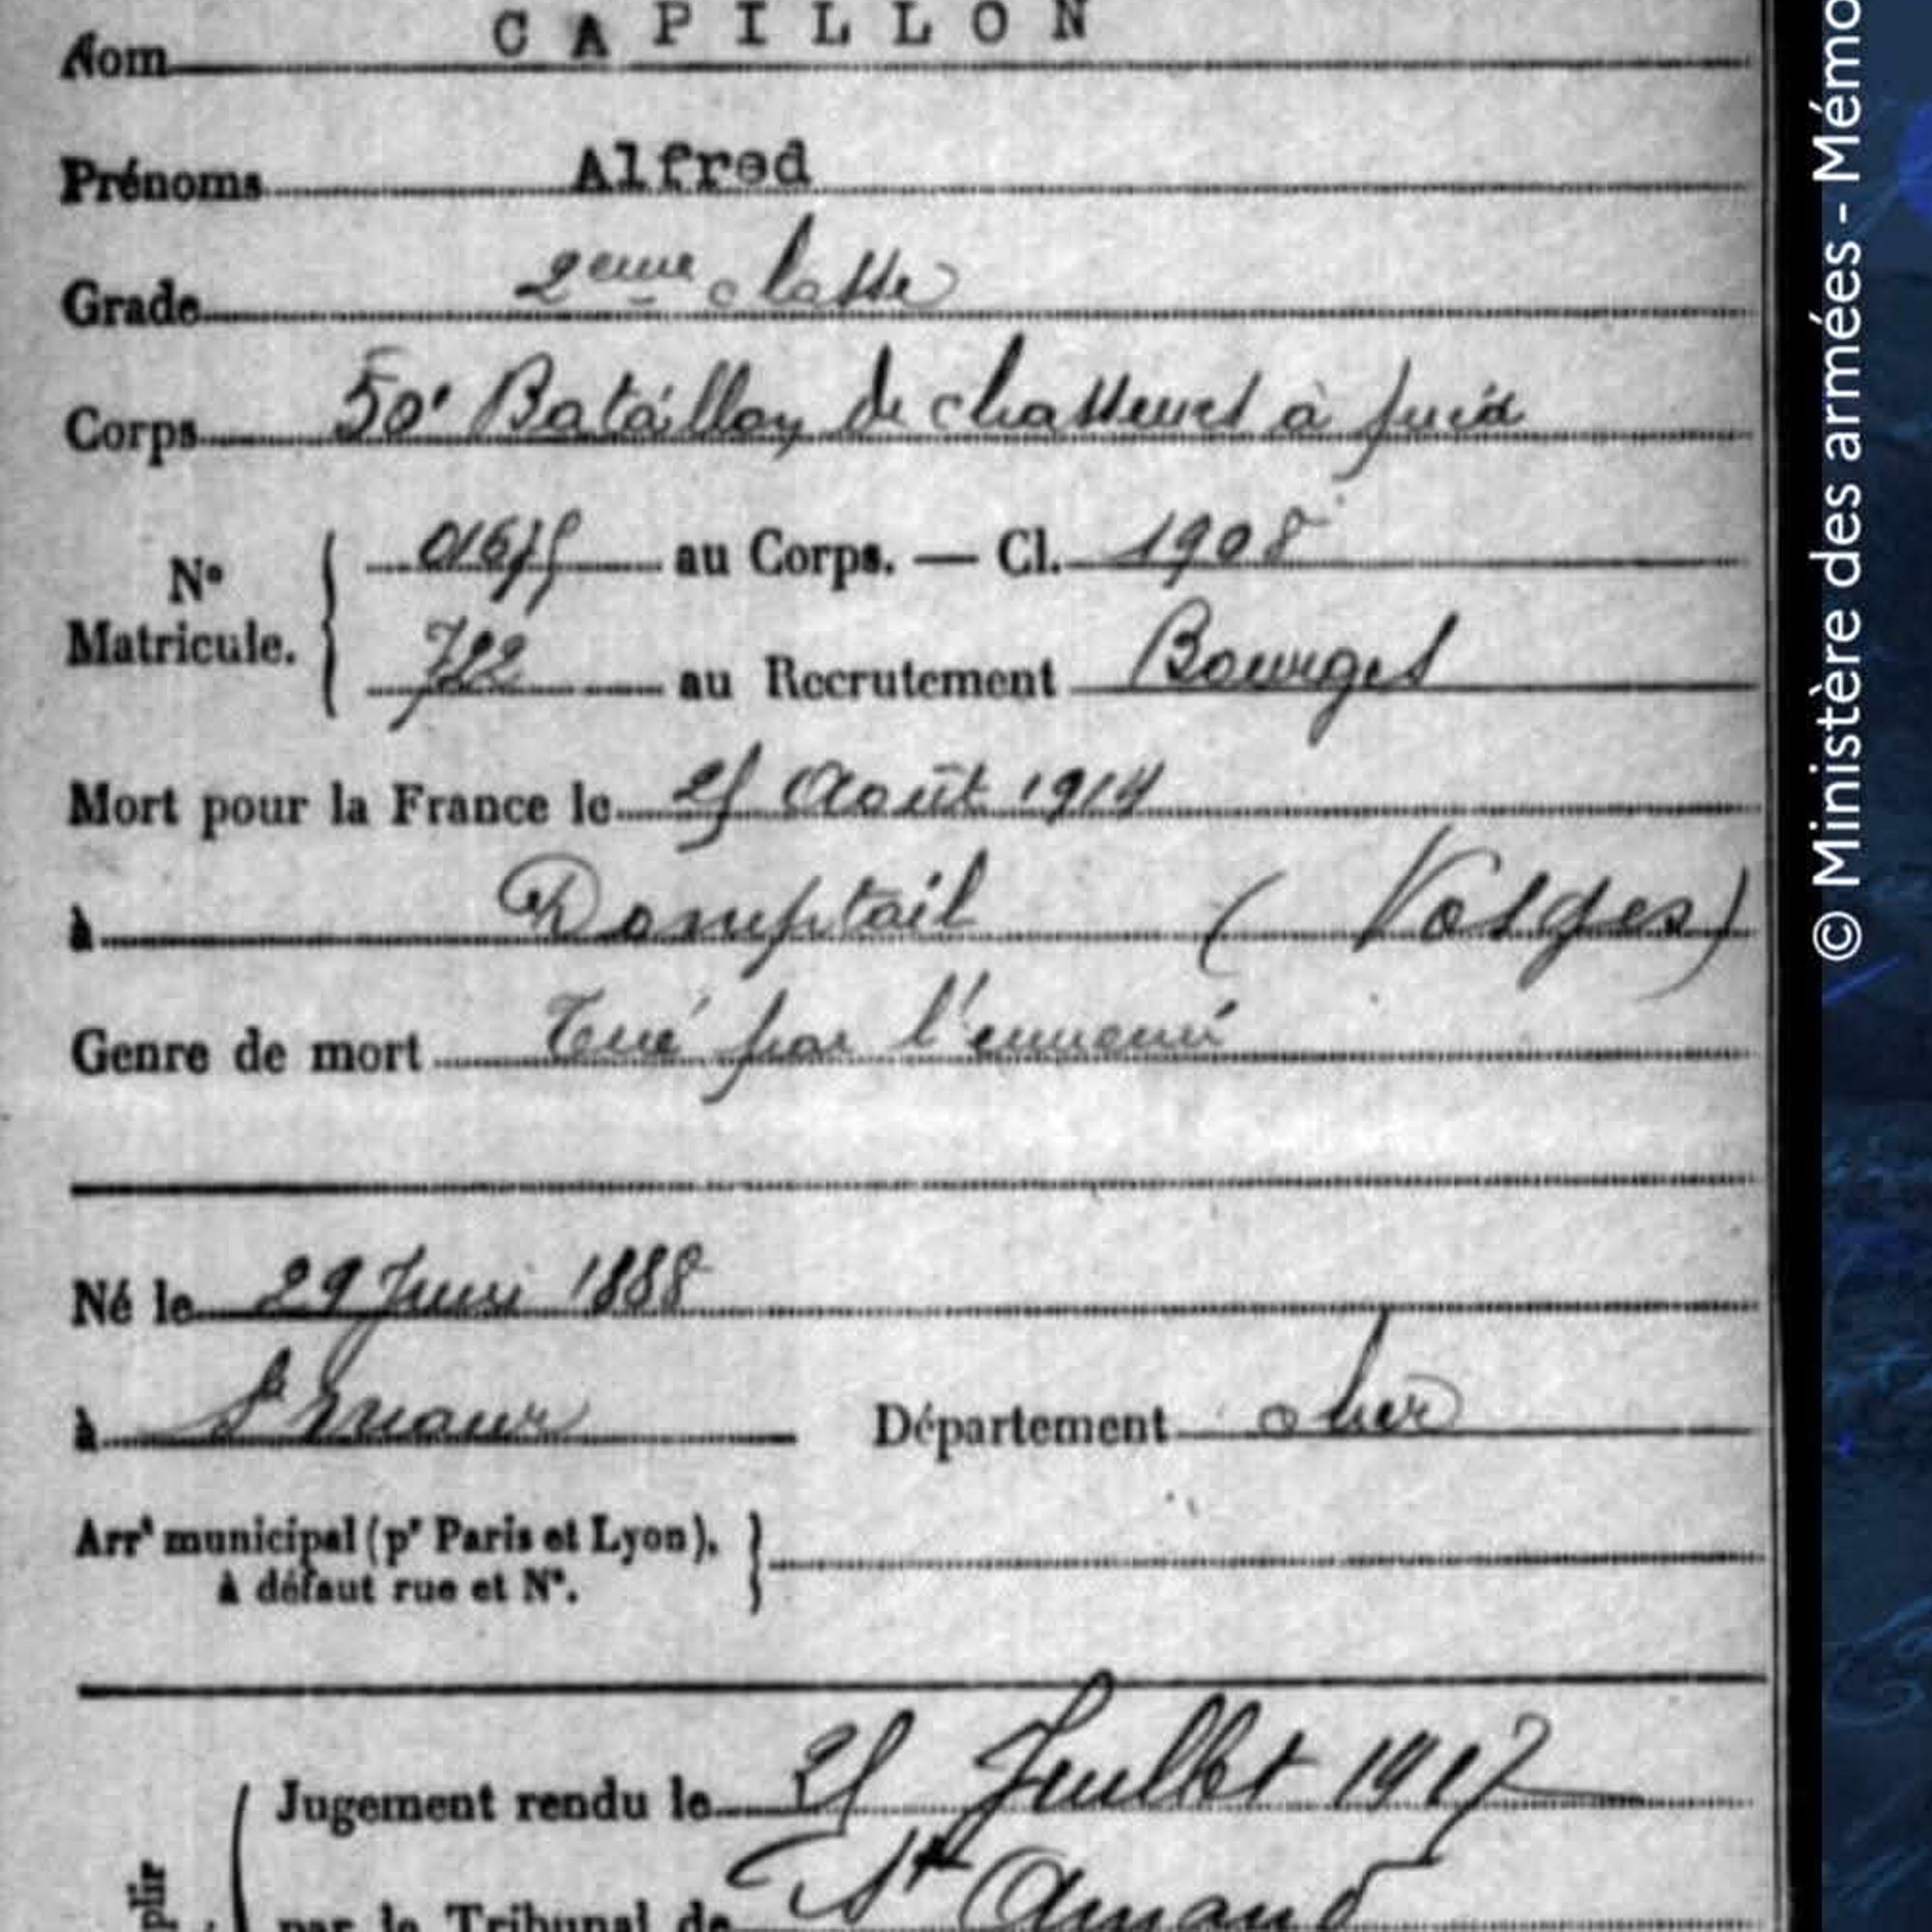 Nom CAPILLON
Prénoms Alfred
Grade 2eme classe
Corps 50e Bataillon de chasseurs à pied
No Matricule. au Corps. — Cl. 1908
722 au Recrutement Bourges
Mort pour la France le 25 Août 1914
à Domptail (Vosges)
Genre de mort Tué par l'ennemi
Né le 29 Juin 1888
à St Maur Département cher
Arrt municipal (pr Paris et Lyon),
à défaut rue et No.
Jugement rendu le 25 Juillet 1917
par le Tribunal de St Amand
plir
© Ministère des armées - Mémo